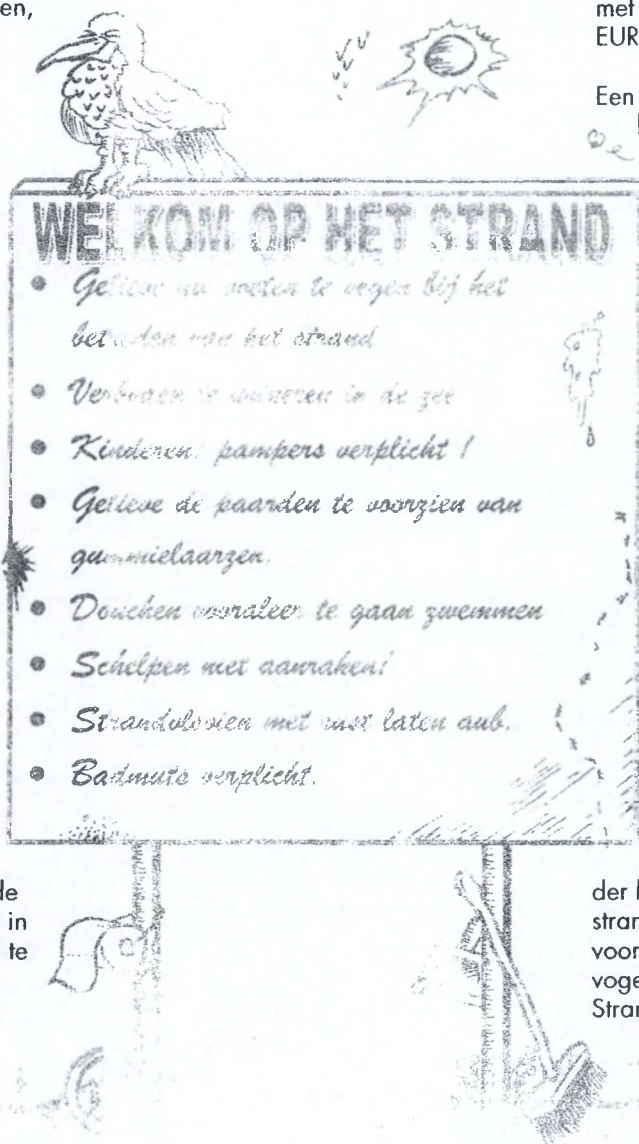 en,
met
EUR
Een
WELKOM OP HET STRAND
• Gelieve uw voeten te vegen bij het
betreden van het strand
• Verboden te urineren in de zee
• Kinderen: pampers verplicht !
• Gelieve de paarden te voorzien van
gummielaarzen.
• Douchen vooraleer te gaan zwemmen
• Schelpen niet aanraken!
• Strandvlooien met rust laten aub.
• Badmuts verplicht.
de
in
te
der
stran
voor
voge
Stran